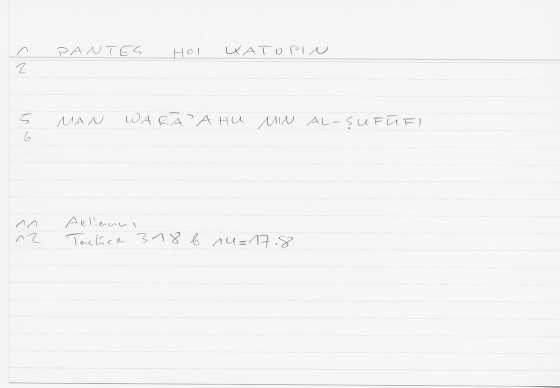 1 PANTES HOI KATOPIN
2
5 MAN WARĀʾAHU MIN AL-ṢUFŪFI
6
11 Aelianus
12 Tactica 318 b 14=17.8